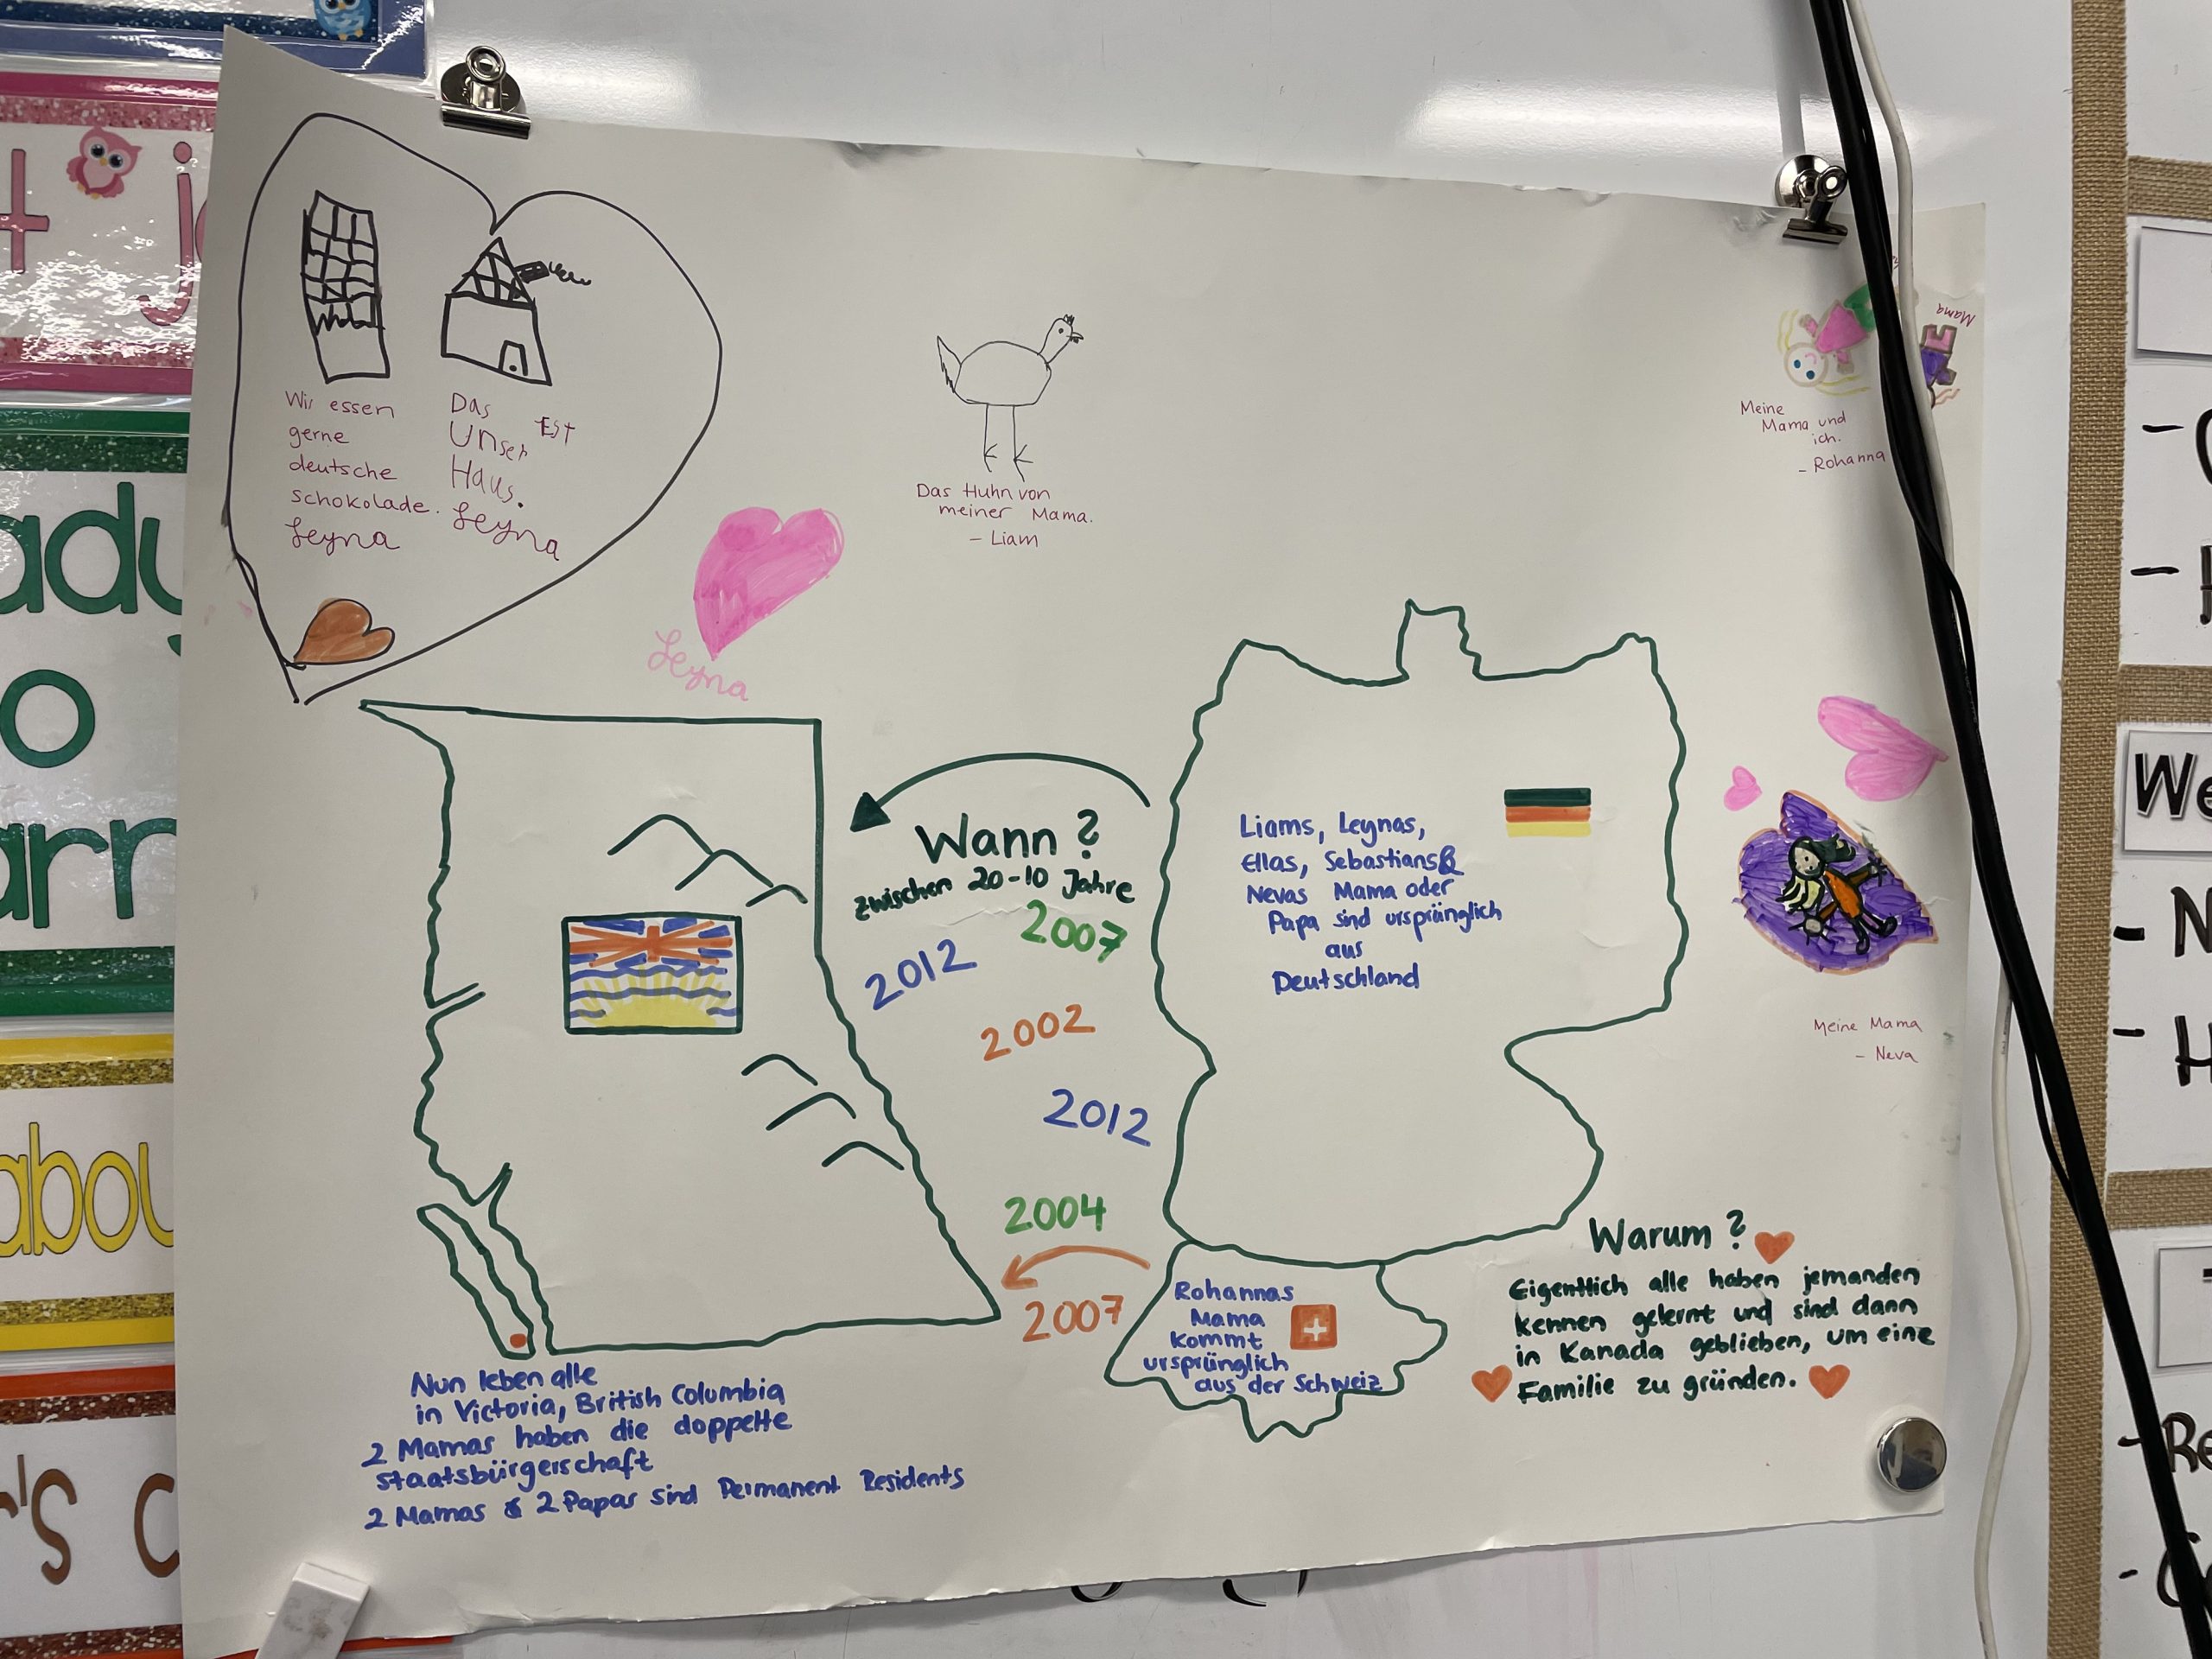 Wir essen
gerne
deutsche
schokolade.
Leyna
Das
Unser Est
Haus.
Leyna
Leyna
Das Huhn von
meiner Mama.
- Liam
Mama
Meine
Mama und
ich.
- Rohanna
Wann?
zwischen 20-10 Jahre
2007
2012
2002
2012
2004
2007
Liams, Leynas,
Ellas, Sebastians &
Nevas Mama oder
Papa sind ursprünglich
aus
Deutschland
Meine Mama
- Neva
Rohannas
Mama
kommt
ursprünglich
aus der Schweiz
Warum?
Eigentlich alle haben jemanden
kennen gelernt und sind dann
in Kanada geblieben, um eine
Familie zu gründen.
Nun leben alle
in Victoria, British Columbia
2 Mamas haben die doppelte
staatsbürgerschaft
2 Mamas & 2 Papas sind Permanent Residents
t j
ady
o
arn
abou
r's c
We